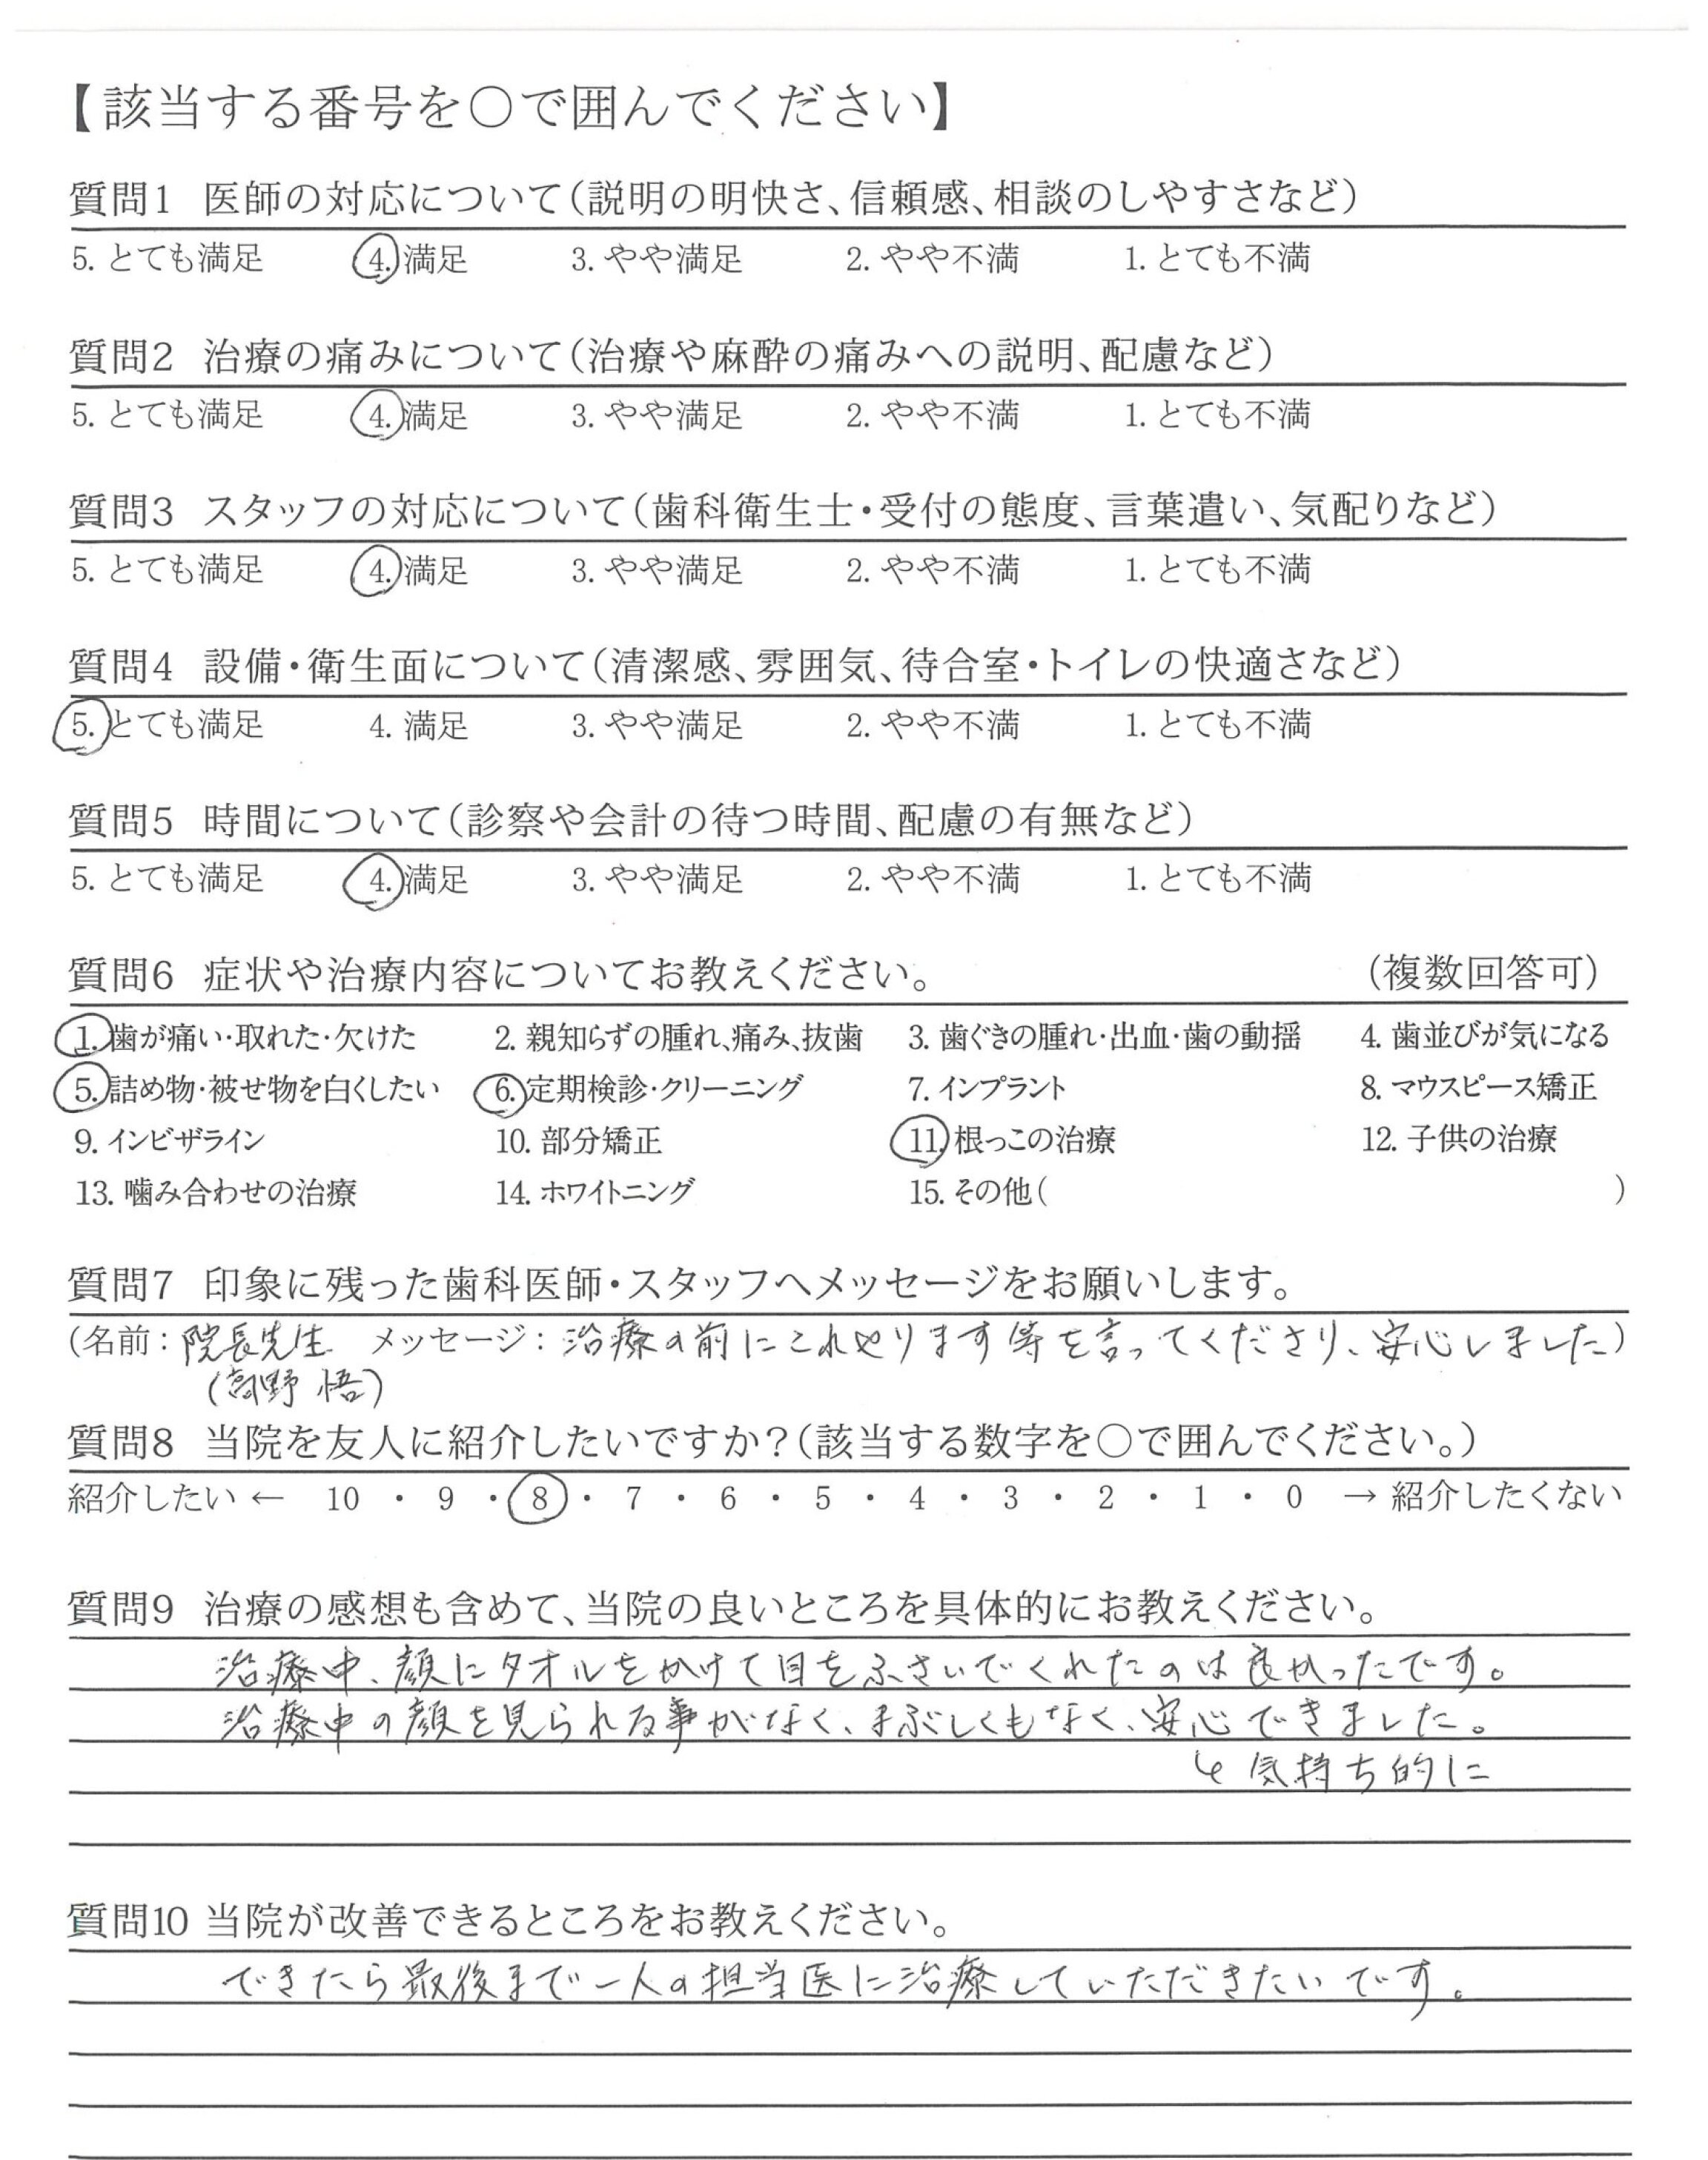 【該当する番号を○で囲んでください】
質問1 医師の対応について(説明の明快さ、信頼感、相談のしやすさなど)
5. とても満足 4. 満足 3. やや満足 2. やや不満 1. とても不満
質問2 治療の痛みについて(治療や麻酔の痛みへの説明、配慮など)
5. とても満足 4. 満足 3. やや満足 2. やや不満 1. とても不満
質問3 スタッフの対応について(歯科衛生士・受付の態度、言葉遣い、気配りなど)
5. とても満足 4. 満足 3. やや満足 2. やや不満 1. とても不満
質問4 設備・衛生面について(清潔感、雰囲気、待合室・トイレの快適さなど)
5. とても満足 4. 満足 3. やや満足 2. やや不満 1. とても不満
質問5 時間について(診察や会計の待つ時間、配慮の有無など)
5. とても満足 4. 満足 3. やや満足 2. やや不満 1. とても不満
質問6 症状や治療内容についてお教えください。 (複数回答可)
1. 歯が痛い・取れた・欠けた 2. 親知らずの腫れ、痛み、抜歯 3. 歯ぐきの腫れ・出血・歯の動揺 4. 歯並びが気になる
5. 詰め物・被せ物を白くしたい 6. 定期検診・クリーニング 7. インプラント 8. マウスピース矯正
9. インビザライン 10. 部分矯正 11. 根っこの治療 12. 子供の治療
13. 噛み合わせの治療 14. ホワイトニング 15. その他( )
質問7 印象に残った歯科医師・スタッフへメッセージをお願いします。
(名前：院長先生 メッセージ：治療の前にこれやります等を言ってくださり、安心しました)
(高野 悟)
質問8 当院を友人に紹介したいですか?(該当する数字を○で囲んでください。)
紹介したい ← 10 ・ 9 ・ 8 ・ 7 ・ 6 ・ 5 ・ 4 ・ 3 ・ 2 ・ 1 ・ 0 → 紹介したくない
質問9 治療の感想も含めて、当院の良いところを具体的にお教えください。
治療中、顔にタオルをかけて目をふさいでくれたのは良かったです。
治療中の顔を見られる事がなく、まぶしくもなく、安心できました。
↳ 気持ち的に
質問10 当院が改善できるところをお教えください。
できたら最後まで一人の担当医に治療していただきたいです。